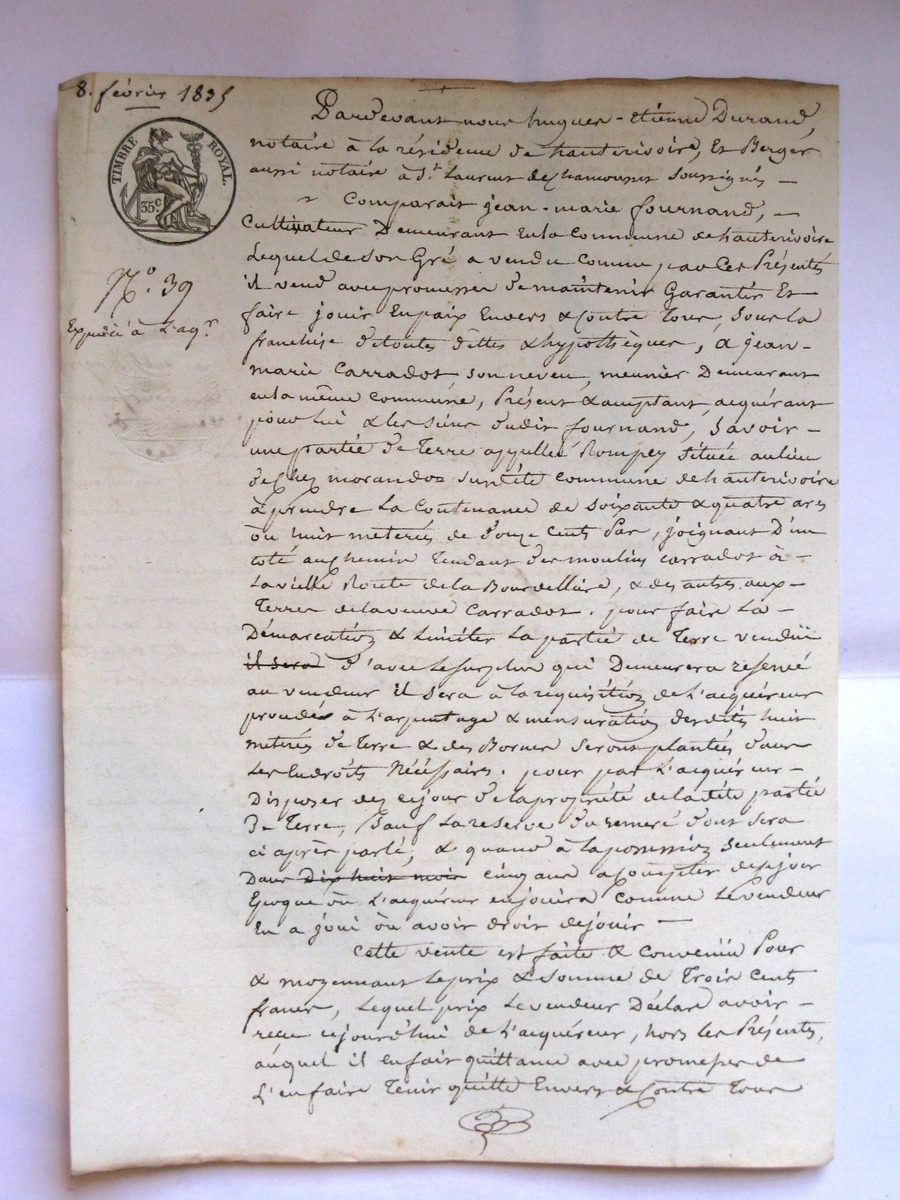 8. février 1835
TIMBRE ROYAL.
35 c
N.o 39
Expédié à L'aqr
Pardevant nous hugues-Etienne Durand,
notaire à la résidence de hauterivoire, Et Berger
aussi notaire à St. Laurent de Chamousset soussignés —
Comparait jean-marie fournand, —
Cultivateur Demeurant en la Commune de hauterivoire
Lequel de son Gré a vendu comme par Ces Présentes
il vend avec promesse de maintenir Garantir Et
faire jouir En paix Envers & Contre Tous, sous la
franchise de toutes dettes & hypothèques, à jean-
marie Carradot son neveu, meunier Demeurant
en la même Commune, Présent & acceptant, acquérant
pour lui & les siens dudit fournand, savoir —
une partie de Terre appellée Rompey située au lieu
de Chez morandos susdite commune de hauterivoire
à prendre La Contenance de soixante & quatre ares
ou huit meterées de douze cents Pas, joignant D'un
coté au chemin Tendant des moulins carradot à —
La vielle Route de la Bourdelliere, & des autres aux —
Terres de la veuve Carradot. pour faire La —
Démarcation & Limiter La partie de Terre vendüe
il sera d'avec le surplus qui Demeurera reservé
au vendeur il sera à la requisition de L'acquéreur
procédé à L'arpentage & mensuration desdits huit
meterées de Terre & des Bornes seront plantées dans
Les Endroits Nécéssaires. pour par L'acquéreur —
Disposer dez cejour de la propriété de la dite partie
de Terre, sauf La reserve du remeré dont sera
ci après parlé, & quand à la possession seulement
Dans Dix huit mois cinq ans a compter de ce jour
Epoque où L'acquéreur en jouira Comme Le vendeur
En a joui ou avoir droit de jouir —
Cette vente est faite & convenüe Pour
& moyennant Le prix & somme de Trois Cents
francs, Lequel prix Le vendeur Déclare avoir —
recu cejourd'hui de L'acquéreur, hors les Présentes,
auquel il en fait quittance avec promesse de
L'en faire Tenir quitte Envers & Contre Tous